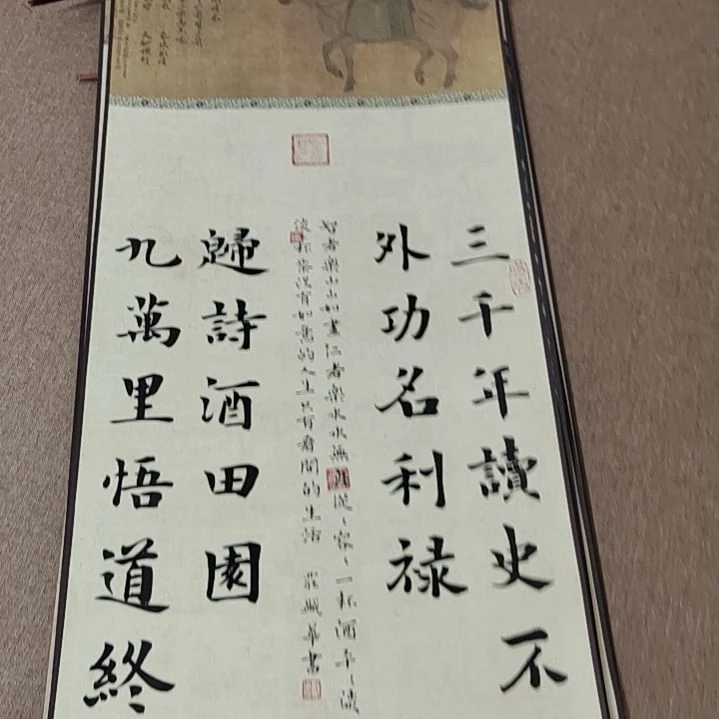 三千年讀史不
外功名利禄
智者樂山山如畫仁者樂水水無從〻容〻一杯酒平〻淡
淡杯茶没有如意的人生只有看開的生活 華書
九萬里悟道終
歸詩酒田園